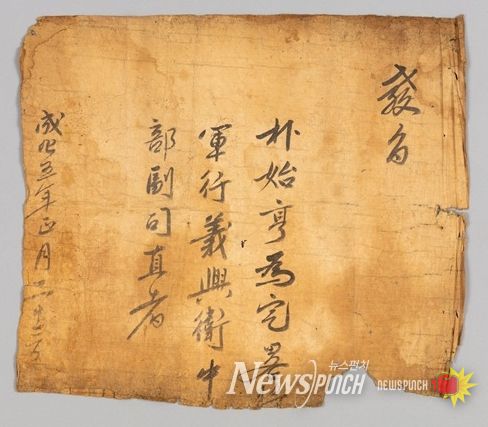 教旨
朴始亨為定畧
軍行義興衛中
部副司直者
成化五年正月二十日
뉴스펀치
NEWSPUNCH
NEWSPUNCH